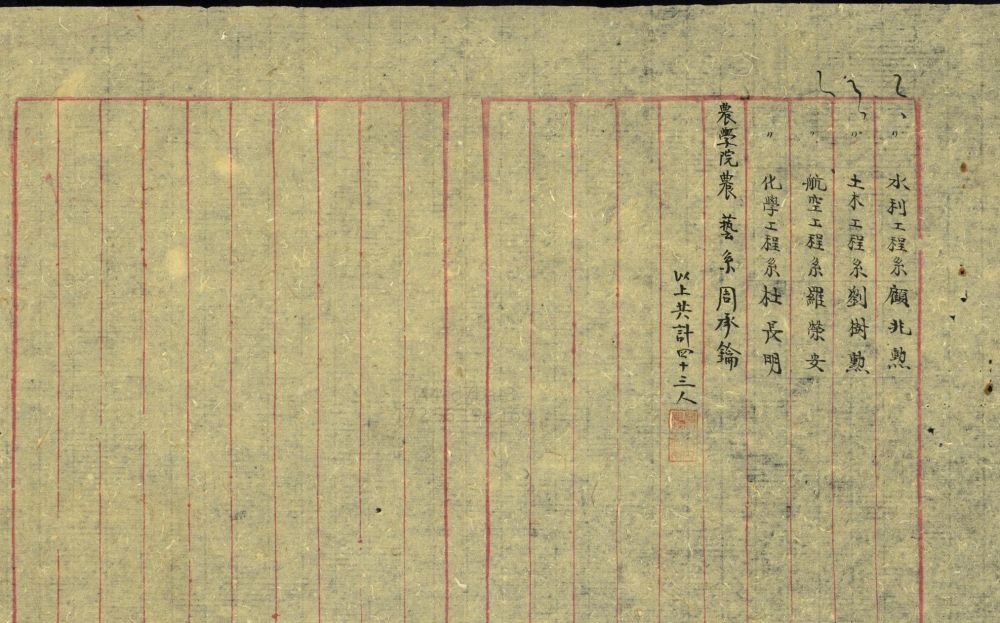 〃 水利工程系顧兆勲
〃 土木工程系劉樹勲
〃 航空工程系羅榮安
〃 化學工程系杜長明
農學院農藝系周承鑰
以上共計四十三人